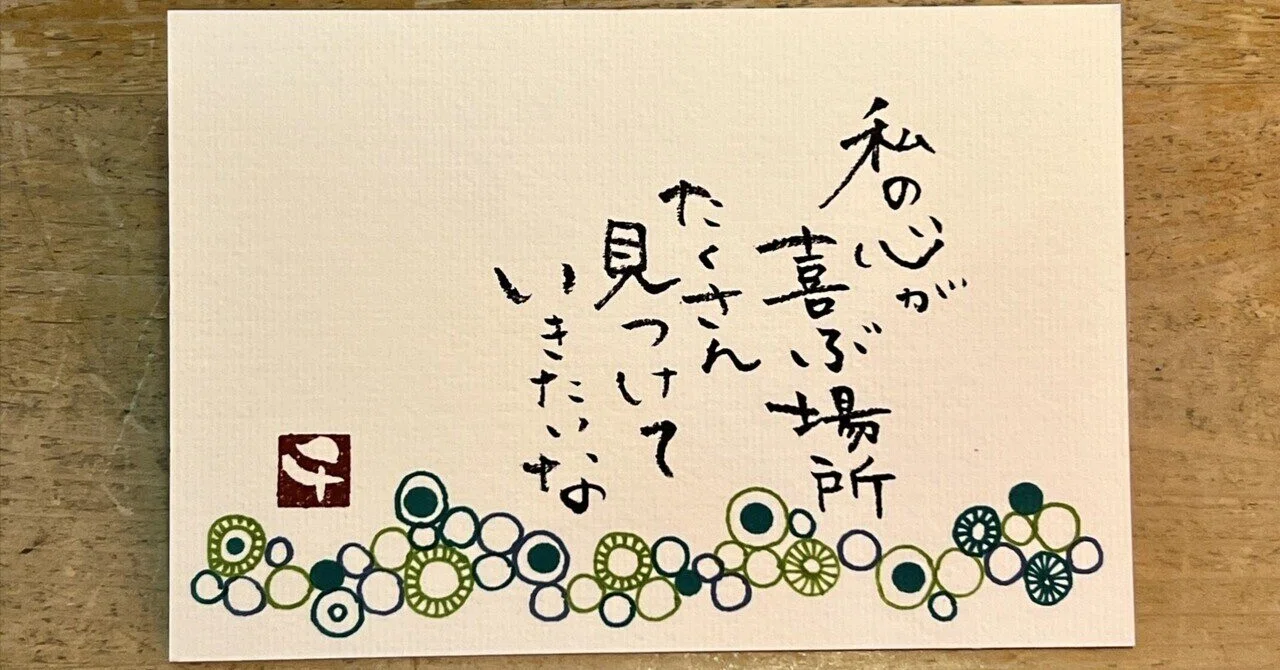 私の心が
喜ぶ場所
たくさん
見つけて
いきたいな